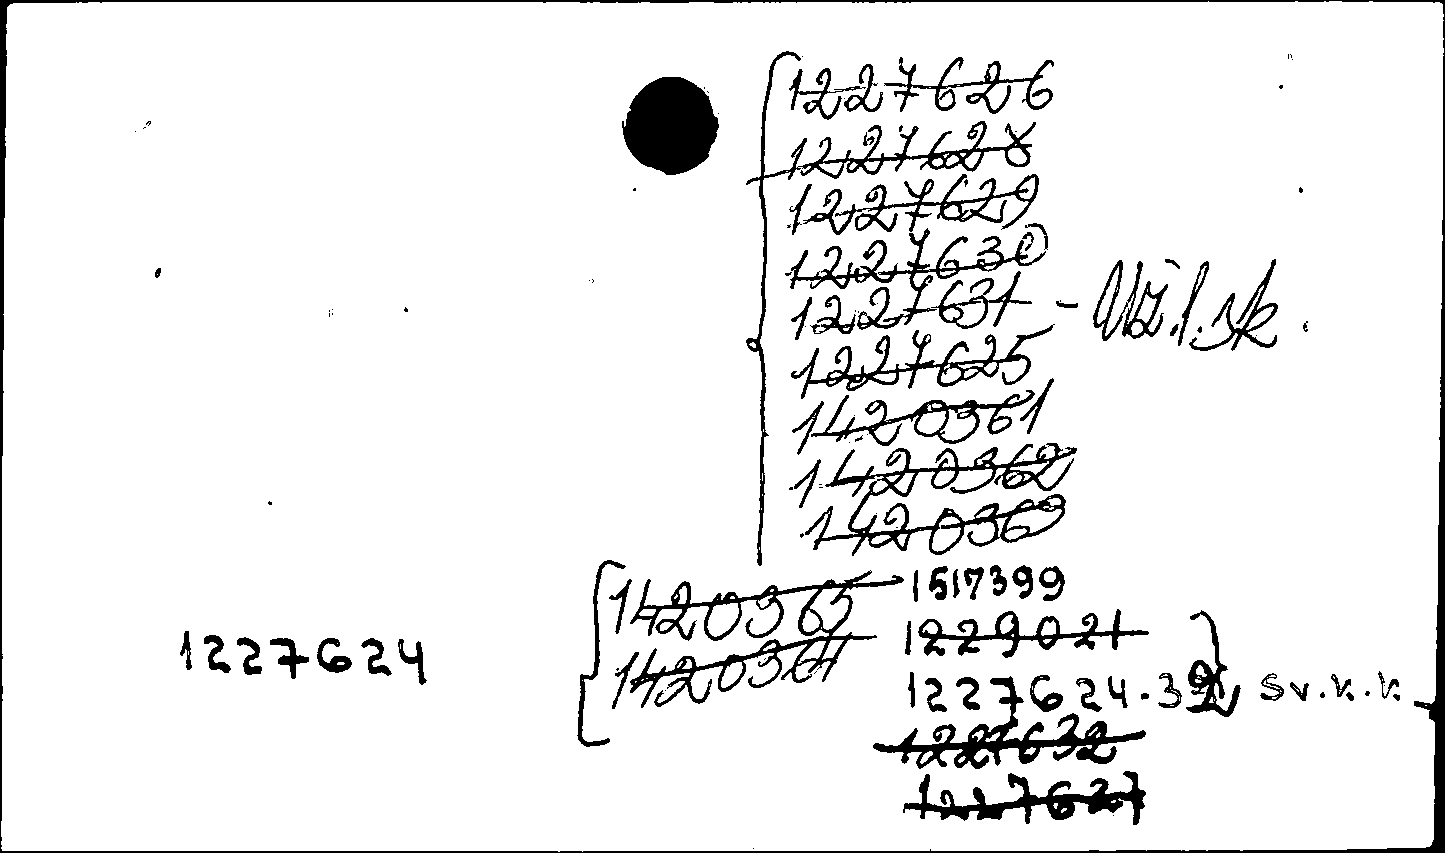 1227626
1227628
1227629
1227630
1227631 -
1227625
1420361
1420362
1420363
1420365 1517399
1420364
1229021
1227624
1227624-32 sv.k.k.
1227632
1227627